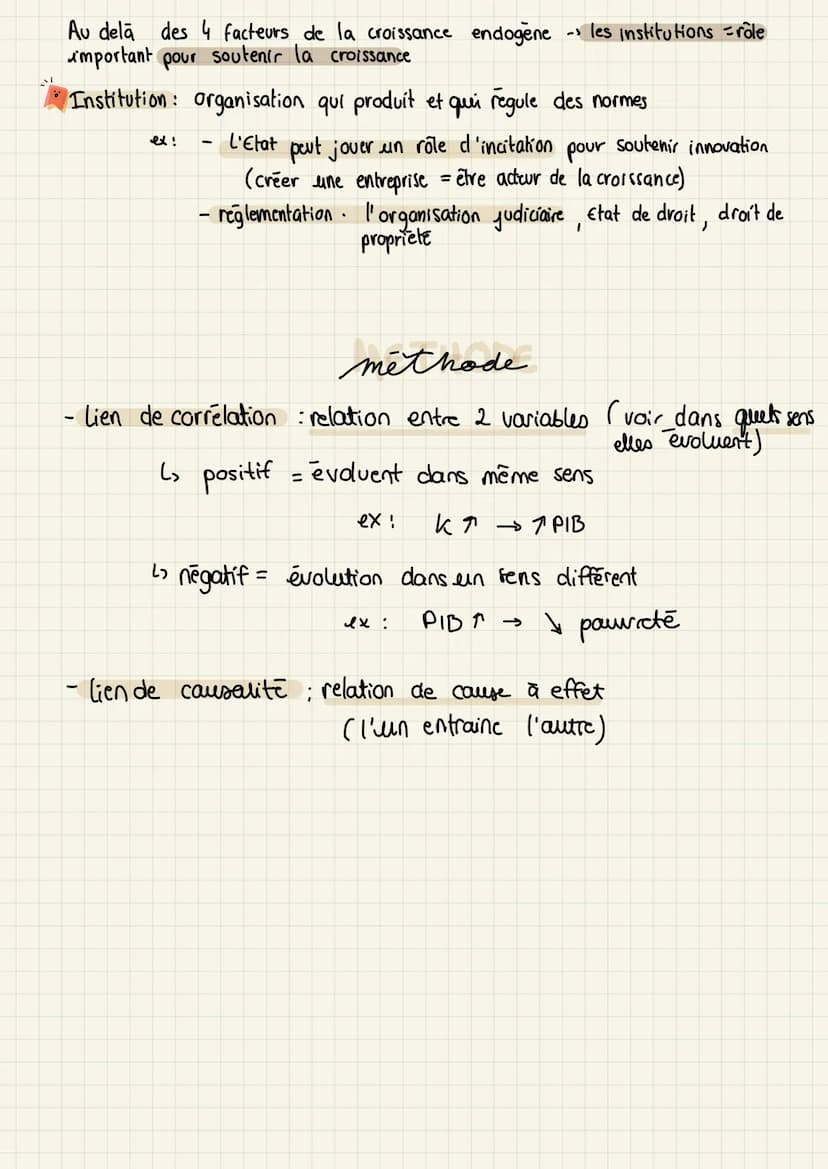 Au delà des 4 facteurs de la croissance endogène -> les institutions = rôle
important pour soutenir la croissance
Institution : organisation qui produit et qui régule des normes
ex : - L'Etat peut jouer un rôle d'incitation pour soutenir innovation
(créer une entreprise = être acteur de la croissance)
- réglementation . l'organisation judiciaire, Etat de droit, droit de
propriété
METHODE
méthode
- Lien de corrélation : relation entre 2 variables (voir dans quels sens
elles évoluent)
↳ positif = évoluent dans même sens
ex : K ↗ → ↗ PIB
↳ négatif = évolution dans un sens différent
ex : PIB ↑ → ↘ pauvreté
- lien de causalité : relation de cause à effet
(l'un entraine l'autre)